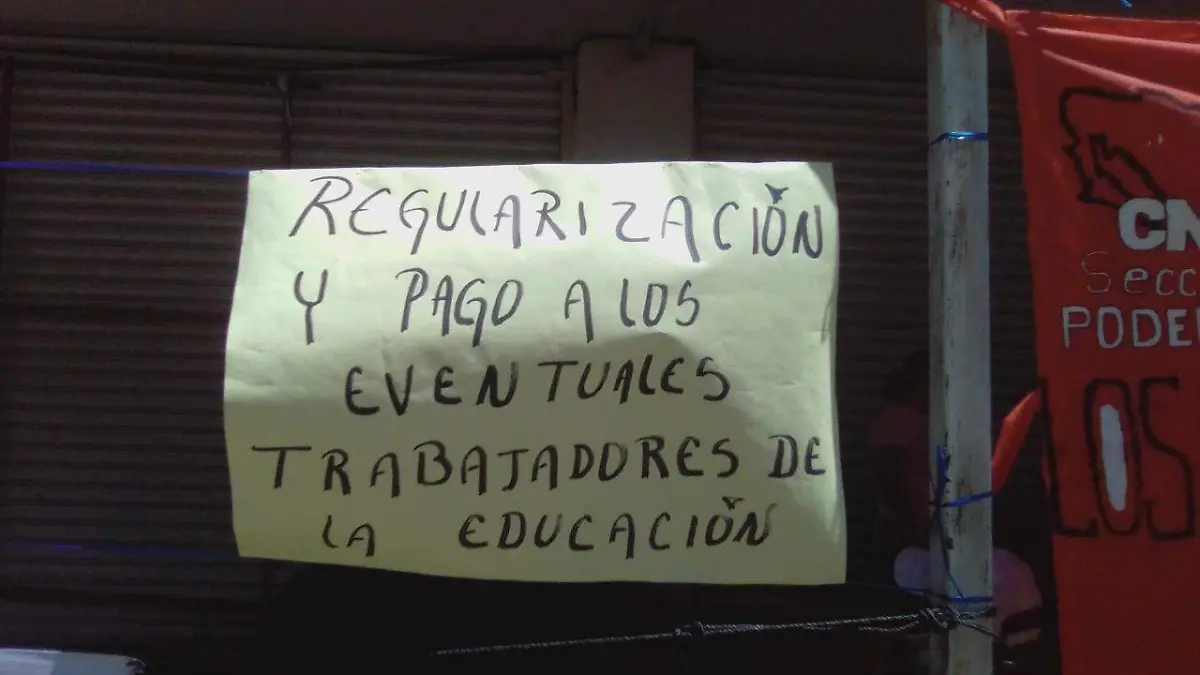 REGULARIZACIÓN
Y PAGO A LOS
EVENTUALES
TRABAJADORES DE
LA EDUCACIÓN
LOS